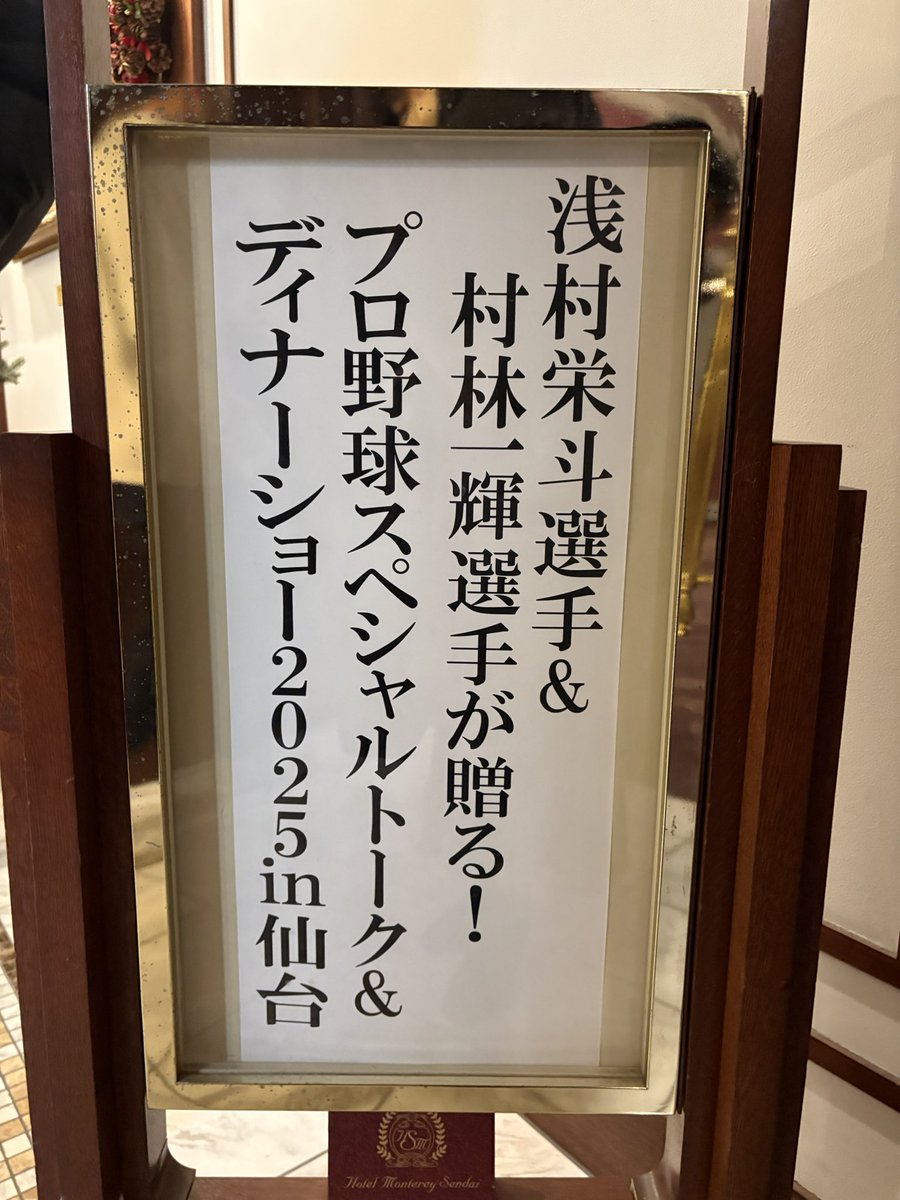 浅村栄斗選手&
村林一輝選手が贈る!
プロ野球スペシャルトーク&
ディナーショー2025in仙台
HSM
Hotel Monterey Sendai